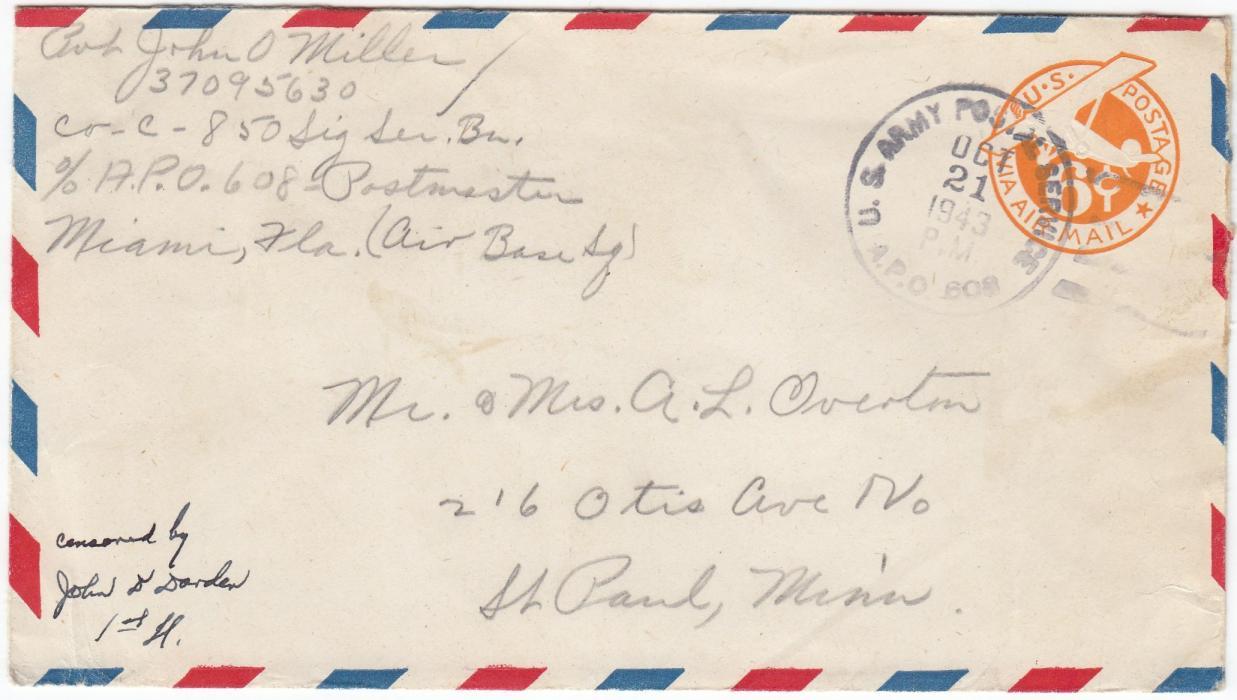 Pvt John O Miller
37095630
Co-C-850 Sig Ser. Bn.
c/o A.P.O. 608-Postmaster
Miami, Fla. (Air Base Sq)
U.S. ARMY POSTAL SERVICE
OCT
21
1943
P.M.
A.P.O. 608
U.S. POSTAGE
6¢
VIA AIR MAIL
Mr. & Mrs. A. L. Overton
216 Otis Ave No
St Paul, Minn.
censored by
John D Darden
1st Lt.